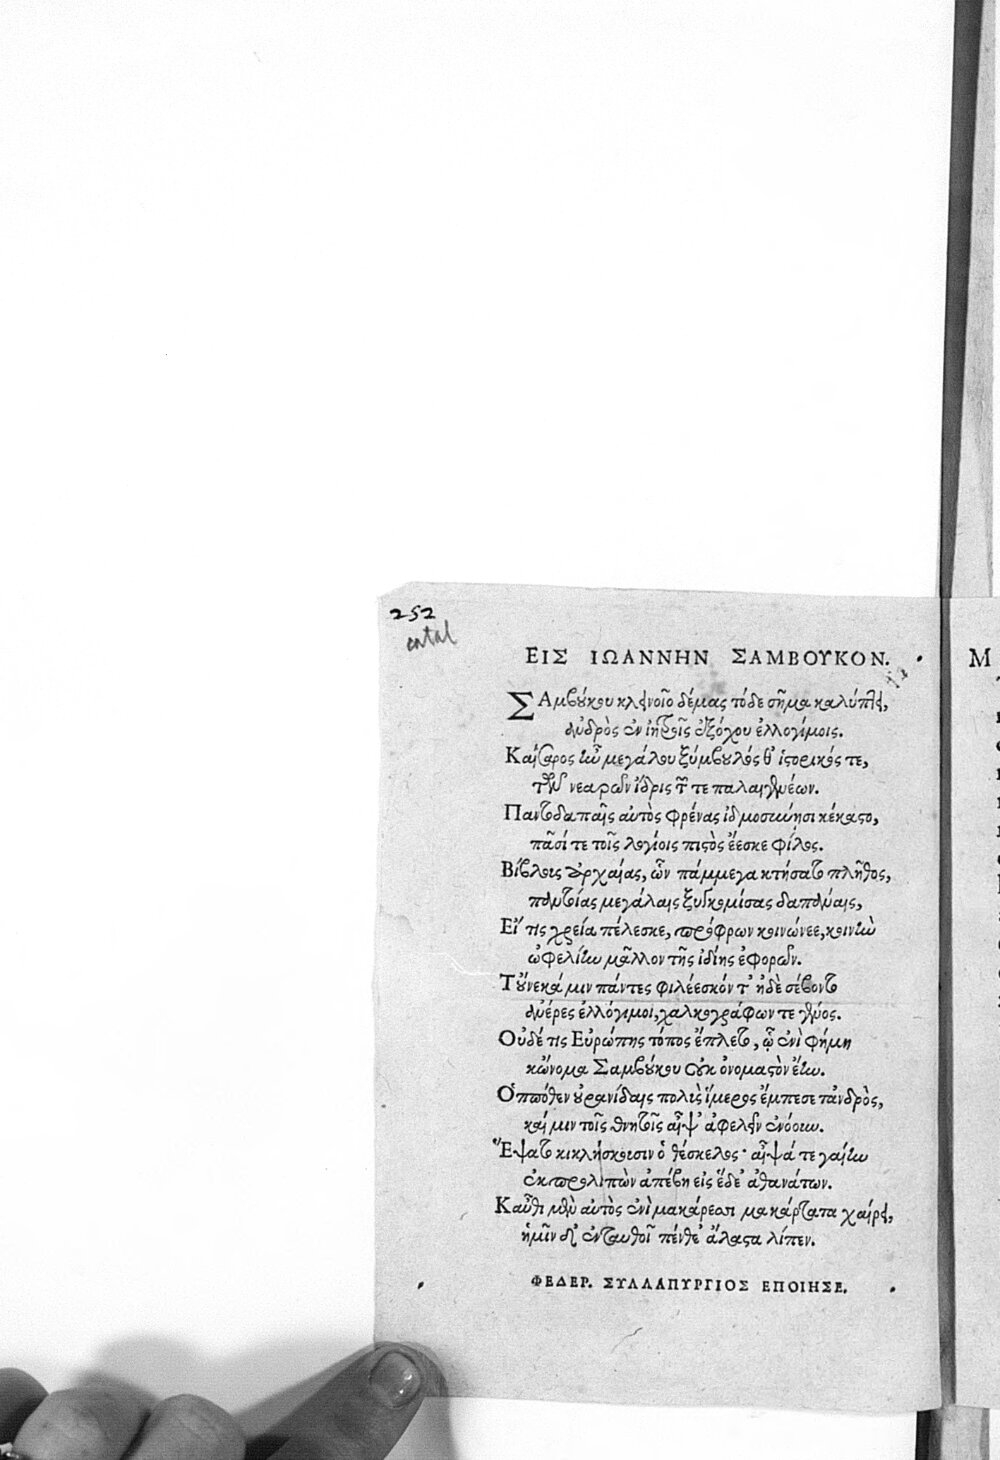 252
catal
ΕΙΣ ΙΩΑΝΝΗΝ ΣΑΜΒΟΥΚΟΝ.
ΣΑμβύκου κλεινοῖο δέμας τόδε σῆμα καλύπτει,
ἀνδρὸς ἐν ἰητροῖς ἐξόχου ἐλλογίμοις.
Καίσαρος ἰῶ μεγάλου ξύμβουλός θ' ἱστορικός τε,
τῶν νεαρῶν ἴδρις τῶν τε παλαιγενέων.
Παντοδαπαῖς αὐτὸς φρένας ἰδμοσιώησι κέκαστο,
πᾶσί τε τοῖς λογίοις πιστὸς ἔεσκε φίλος.
Βίβλοις ἀρχαίας, ὧν πάμμεγα κτήσατο πλῆθος,
πολυτίας μεγάλαις ξυγκομίσας δαπάναις,
Εἴ τις χρεία πέλεσκε, πρόφρων κοινώνεε, κοινὴν
ὠφελίην μᾶλλον τῆς ἰδίης ἐφορῶν.
Τοὔνεκά μιν πάντες φιλέεσκόν τ' ἠδὲ σέβοντο
ἀνέρες ἐλλόγιμοι, χαλκογράφων τε γένος.
Οὐδέ τις Εὐρώπης τόπος ἔπλετο, ᾧ ἐνὶ φήμη
κὤνομα Σαμβύκου οὐκ ὀνομαστὸν ἔην.
Ὁππόθεν οὐρανίδαις πολὺς ἵμερος ἔμπεσε τἀνδρὸς,
καί μιν τοῖς θνητοῖς αἶψ' ἀφελεῖν ἐνόουν.
Ἕψατο κικλήσκοισιν ὁ θέσκελος· αἶψά τε γαίην
ἐκπρολιπὼν ἀπέβη εἰς ἕδε' ἀθανάτων.
Καὖθι μὲν αὐτὸς ἐνὶ μακάρεσσι μακάρτατα χαίρει,
ἡμῖν δ' ἐνταυθοῖ πένθε' ἄλαστα λίπεν.
ΦΕΔΕΡ. ΣΥΛΛΑΠΥΡΓΙΟΣ ΕΠΟΙΗΣΕ.
Μ